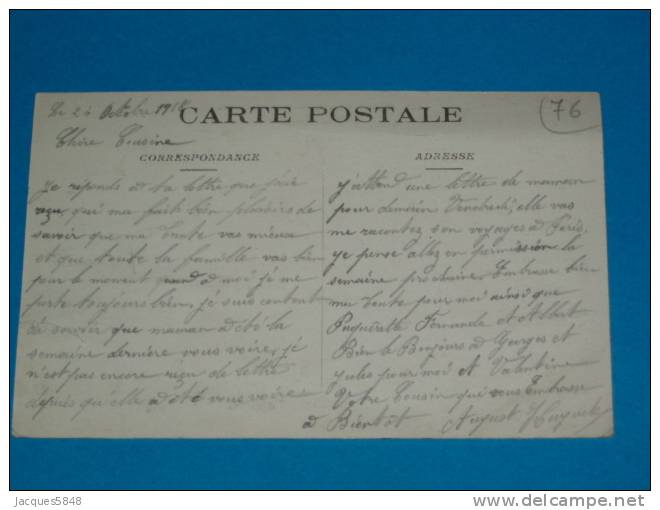 Le 24 Octobre 1918
CARTE POSTALE
76
Chère Cousine
CORRESPONDANCE
Je réponds a ta lettre que j'ais
reçu, qui ma fait bien plaisirs de
savoir que ma Tante vas mieux
et que toute la famille vas bien
pour le moment quand a moi je me
porte toujours bien, je suis content
de savoir que maman a été la
semaine dernière vous voire, je
n'est pas encore reçu de lettre
depuis qu'elle a été vous voire
ADRESSE
j'attend une lettre de maman
pour demain Vendredi, elle vas
me racontez son voyages a Paris,
je pense allez en permission la
semaine prochaine. Embrasse bien
ma Tante pour moi ainsi que
Fernande et Albert
Bien le Bonjours a Georges et
Jules pour moi et Valentine
Votre Cousin que vous Embrasse
a Bientôt August
Jacques5848
www.delcampe.net